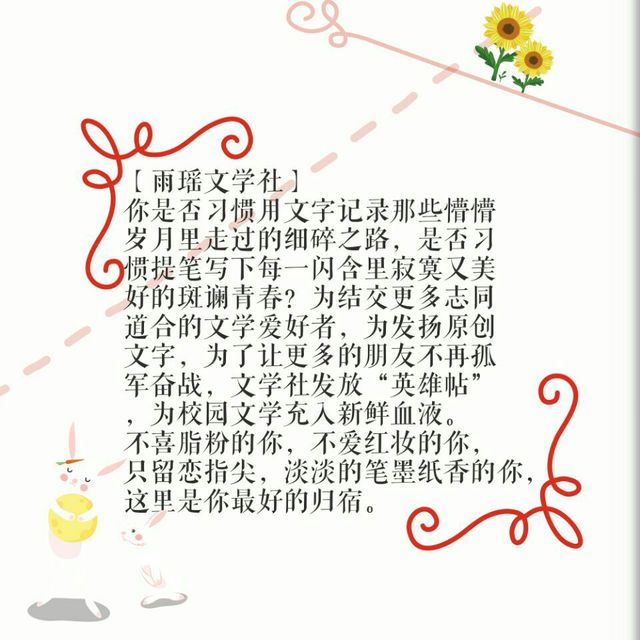 【雨瑶文学社】
你是否习惯用文字记录那些懵懵
岁月里走过的细碎之路，是否习
惯提笔写下每一闪含里寂寞又美
好的斑谰青春？为结交更多志同
道合的文学爱好者，为发扬原创
文字，为了让更多的朋友不再孤
军奋战，文学社发放“英雄帖”
，为校园文学充入新鲜血液。
不喜脂粉的你，不爱红妆的你，
只留恋指尖，淡淡的笔墨纸香的你，
这里是你最好的归宿。